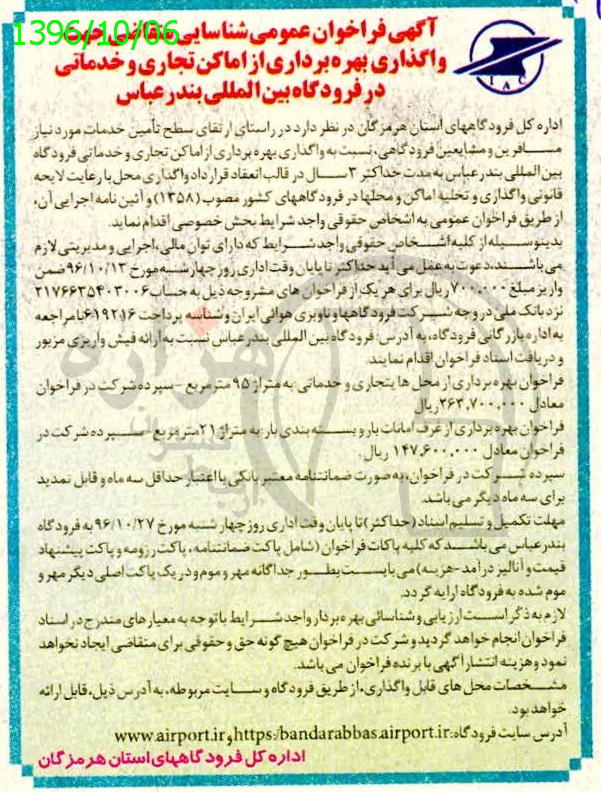 1396/10/06
آگهی فراخوان عمومی شناسایی متقاضی جهت
واگذاری بهره برداری از اماکن تجاری و خدماتی
در فرودگاه بین المللی بندرعباس
IAC
اداره کل فرودگاههای استان هرمزگان در نظر دارد در راستای ارتقای سطح تأمین خدمات مورد نیاز
مسافرین و مشایعین فرودگاهی، نسبت به واگذاری بهره برداری از اماکن تجاری و خدماتی فرودگاه
بین المللی بندرعباس به مدت حداکثر ۳ سال در قالب انعقاد قرارداد واگذاری محل با رعایت لایحه
قانونی واگذاری و تخلیه اماکن و محلها در فرودگاههای کشور مصوب (۱۳۵۸) و آئین نامه اجرایی آن،
از طریق فراخوان عمومی به اشخاص حقوقی واجد شرایط بخش خصوصی اقدام نماید.
بدینوسیله از کلیه اشخاص حقوقی واجد شرایط که دارای توان مالی، اجرایی و مدیریتی لازم
می باشند، دعوت به عمل می آید حداکثر تا پایان وقت اداری روز چهارشنبه مورخ ۹۶/۱۰/۱۳ ضمن
واریز مبلغ ۷۰۰,۰۰۰ ریال برای هر یک از فراخوان های مشروحه ذیل به حساب ۲۱۷۶۶۳۵۴۰۳۰۰۶
نزد بانک ملی در وجه شرکت فرودگاهها و ناوبری هوائی ایران و شناسه پرداخت ۶۱۹۲۱۶ با مراجعه
به اداره بازرگانی فرودگاه، به آدرس: فرودگاه بین المللی بندرعباس نسبت به ارائه فیش واریزی مزبور
و دریافت اسناد فراخوان اقدام نمایند.
فراخوان بهره برداری از محل ها یتجاری و خدماتی به متراژ ۹۵ متر مربع - سپرده شرکت در فراخوان
معادل ۲۶۳,۷۰۰,۰۰۰ ریال
فراخوان بهره برداری از غرف امانات بار و بسته بندی بار: به متراژ ۲۱ متر مربع - سپرده شرکت در
فراخوان معادل ۱۴۷,۶۰۰,۰۰۰ ریال.
سپرده شرکت در فراخوان، به صورت ضمانتنامه معتبر بانکی با اعتبار حداقل سه ماه و قابل تمدید
برای سه ماه دیگر می باشد.
مهلت تکمیل و تسلیم اسناد (حداکثر) تا پایان وقت اداری روز چهارشنبه مورخ ۹۶/۱۰/۲۷ به فرودگاه
بندرعباس می باشد که کلیه پاکات فراخوان (شامل پاکت ضمانتنامه، پاکت رزومه و پاکت پیشنهاد
قیمت و آنالیز درآمد - هزینه) می بایست بطور جداگانه مهر و موم و در یک پاکت اصلی دیگر مهر و
موم شده به فرودگاه ارایه گردد.
لازم به ذکر است ارزیابی و شناسائی بهره بردار واجد شرایط با توجه به معیارهای مندرج در اسناد
فراخوان انجام خواهد گردید و شرکت در فراخوان هیچ گونه حق و حقوقی برای متقاضی ایجاد نخواهد
نمود و هزینه انتشار آگهی با برنده فراخوان می باشد.
مشخصات محل های قابل واگذاری، از طریق فرودگاه و سایت مربوطه، به آدرس ذیل، قابل ارائه
خواهد بود.
آدرس سایت فرودگاه: https:/bandarabbas.airport.ir و www.airport.ir
اداره کل فرودگاههای استان هرمزگان